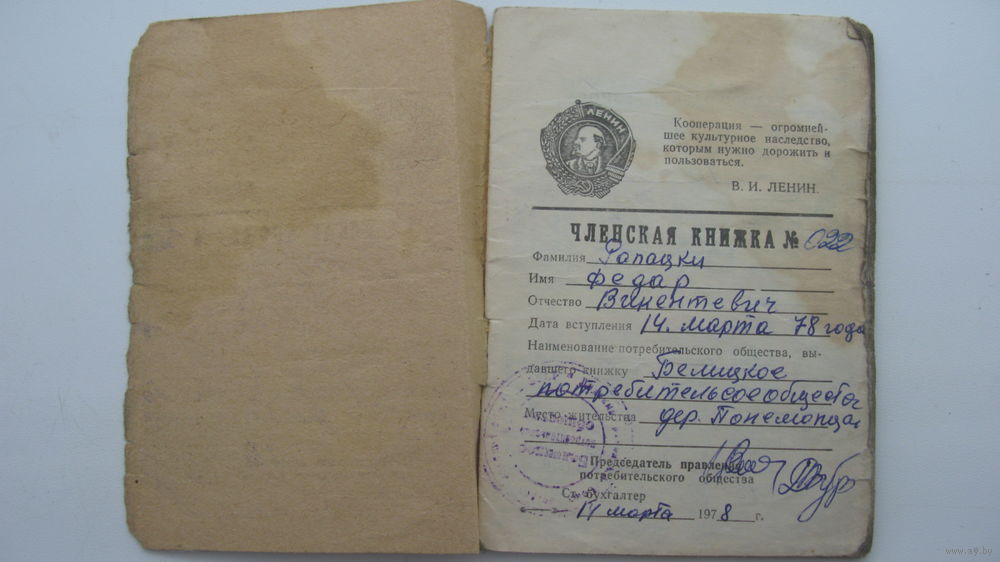 ЛЕНИН
Кооперация — огромней-
шее культурное наследство,
которым нужно дорожить и
пользоваться.
В. И. ЛЕНИН.
ЧЛЕНСКАЯ КНИЖКА № 022
Фамилия Рапацки
Имя Федар
Отчество Викентевич
Дата вступления 14. марта 78 года
Наименование потребительского общества, вы-
давшего книжку Белицкое
потребительсоеобщество
Место жительства дер.
Председатель правления
потребительского общества
Ст. бухгалтер
14 марта 1978 г.
www.ay.by